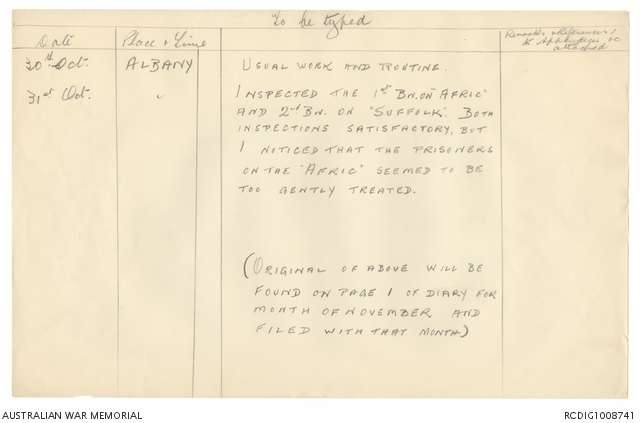 To be typed
Date Place & Time Remarks & References
to Appendices &c
attached
30th Oct. ALBANY USUAL WORK AND ROUTINE.
31st Oct. " INSPECTED THE 1st BN. ON "AFRIC"
AND 2nd BN. ON "SUFFOLK". BOTH
INSPECTIONS SATISFACTORY, BUT
I NOTICED THAT THE PRISONERS
ON THE "AFRIC" SEEMED TO BE
TOO GENTLY TREATED.
(ORIGINAL OF ABOVE WILL BE
FOUND ON PAGE 1 OF DIARY FOR
MONTH OF NOVEMBER AND
FILED WITH THAT MONTH)
AUSTRALIAN WAR MEMORIAL RCDIG1008741